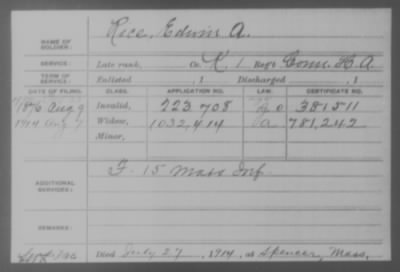 NAME OF SOLDIER: Rice, Edwin A.
SERVICE: Late rank, Co. K, 1 Reg't Conn. H. A.
TERM OF SERVICE: Enlisted , 1 Discharged , 1
DATE OF FILING. CLASS. APPLICATION NO. LAW. CERTIFICATE NO.
1876 Aug 9 Invalid, 223.708 381511
1914 Aug 7 Widow, 1032,414 781,242
Minor,
ADDITIONAL SERVICES: F. 15 Mass Inf
REMARKS:
Died July 27, 1914, at Spencer, Mass.